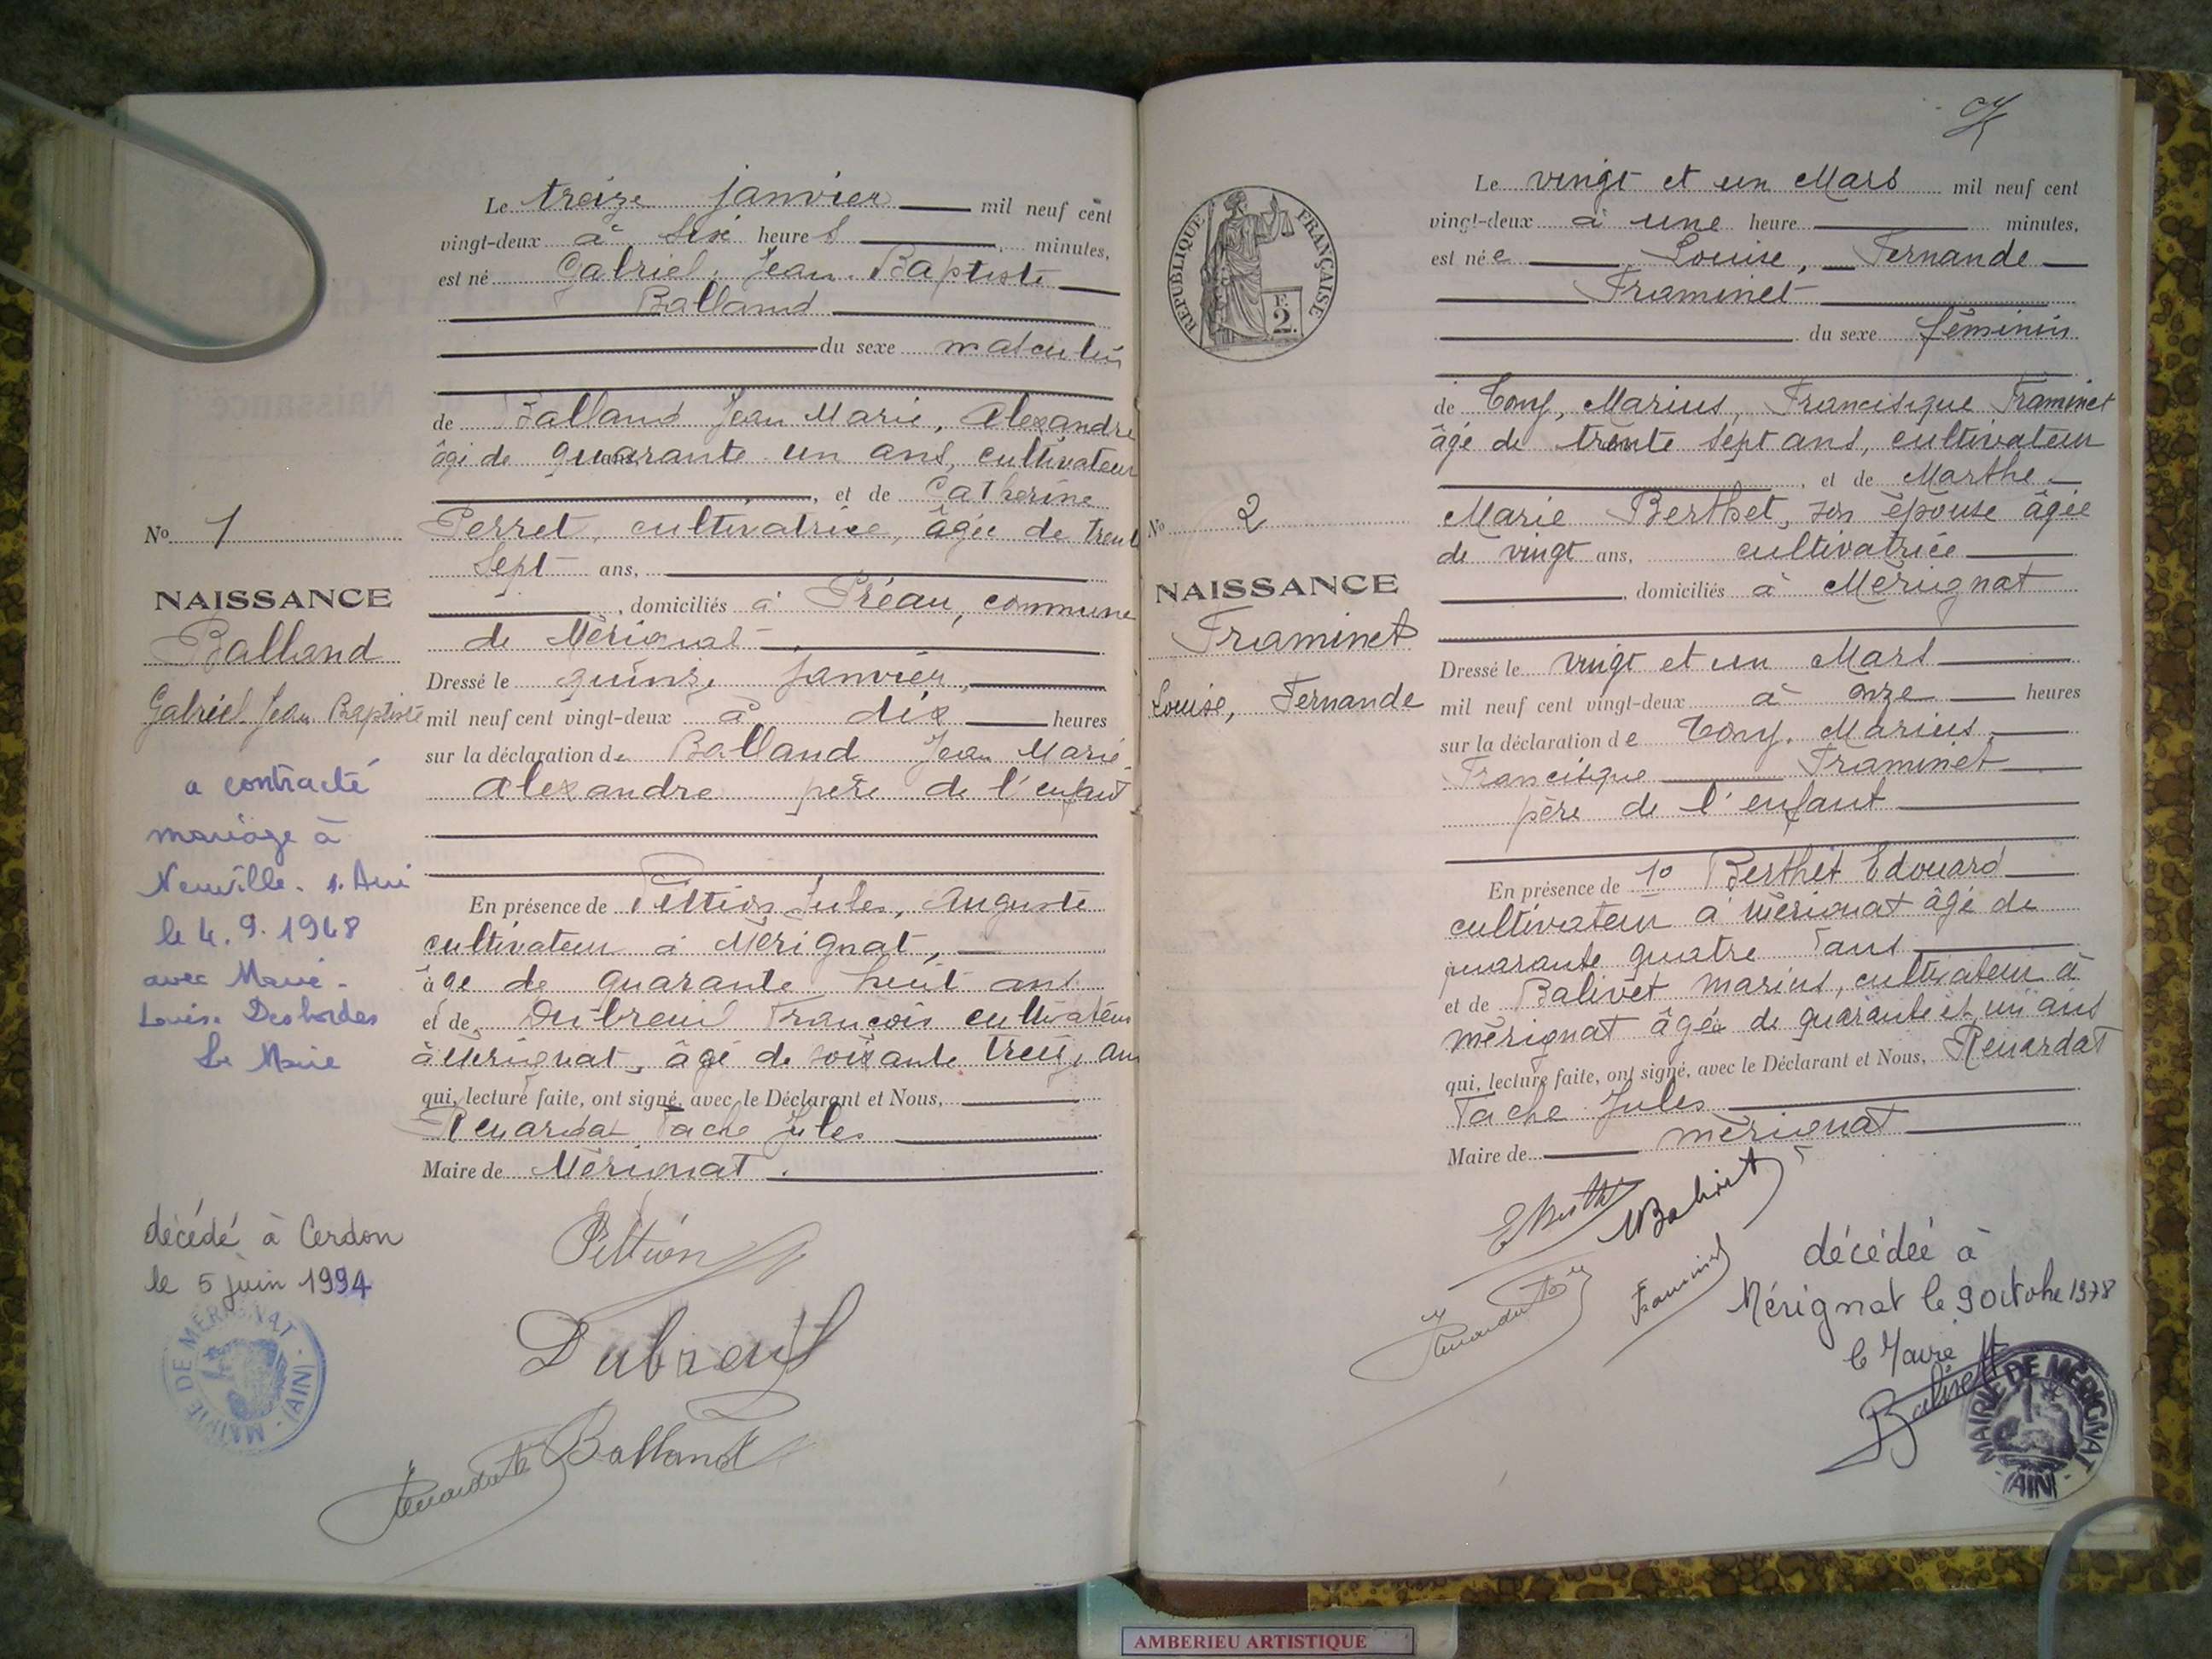 Le treize janvier mil neuf cent
vingt-deux à six heures minutes,
est né Gabriel, Jean-Baptiste
Balland
du sexe masculin
de Balland Jean Marie, Alexandre
âgé de quarante un ans, cultivateur
, et de Catherine
Perret, cultivatrice, âgée de trente
sept ans,
, domiciliés à Préau, commune
de Mérignat
Dressé le quinze janvier,
mil neuf cent vingt-deux à dix heures
sur la déclaration de Balland Jean Marie
Alexandre père de l'enfant
En présence de Pittion Jules, Auguste
cultivateur à Mérignat,
âgé de quarante huit ans
et de Dubreuil François cultivateur
à Mérignat, âgé de soixante treize ans
qui, lecture faite, ont signé, avec le Déclarant et Nous,
Renardat Tache Jules
Maire de Mérignat.
No 1
NAISSANCE
Balland
Gabriel Jean Baptiste
a contracté
mariage à
Neuville. s. Ain
le 4. 9. 1948
avec Marie-
Louise Desbordes
Le Maire
décédé à Cerdon
le 5 juin 1994
MAIRIE DE MÉRIGNAT (AIN)
Pittion
Dubreuil
Balland
RÉPUBLIQUE FRANÇAISE
F.
2.
Le vingt et un Mars mil neuf cent
vingt-deux à une heure minutes,
est née Louise, Fernande
Framinet
du sexe féminin
de Tony, Marius, Francisque Framinet
âgé de trente sept ans, cultivateur
, et de Marthe
Marie Berthet, son épouse âgée
de vingt ans, cultivatrice
, domiciliés à Mérignat
Dressé le vingt et un Mars
mil neuf cent vingt-deux à onze heures
sur la déclaration de Tony, Marius,
Francisque Framinet
père de l'enfant
En présence de 1o Berthet Edouard
cultivateur à Mérignat âgé de
quarante quatre ans
et de Balivet Marius, cultivateur à
Mérignat âgé de quarante et un ans
qui, lecture faite, ont signé, avec le Déclarant et Nous, Renardat
Tache Jules
Maire de Mérignat
No 2
NAISSANCE
Framinet
Louise, Fernande
MBalivet
Framinet
décédée à
Mérignat le 9 octobre 1978
le Maire
Balivet
MAIRIE DE MÉRIGNAT (AIN)
AMBERIEU ARTISTIQUE